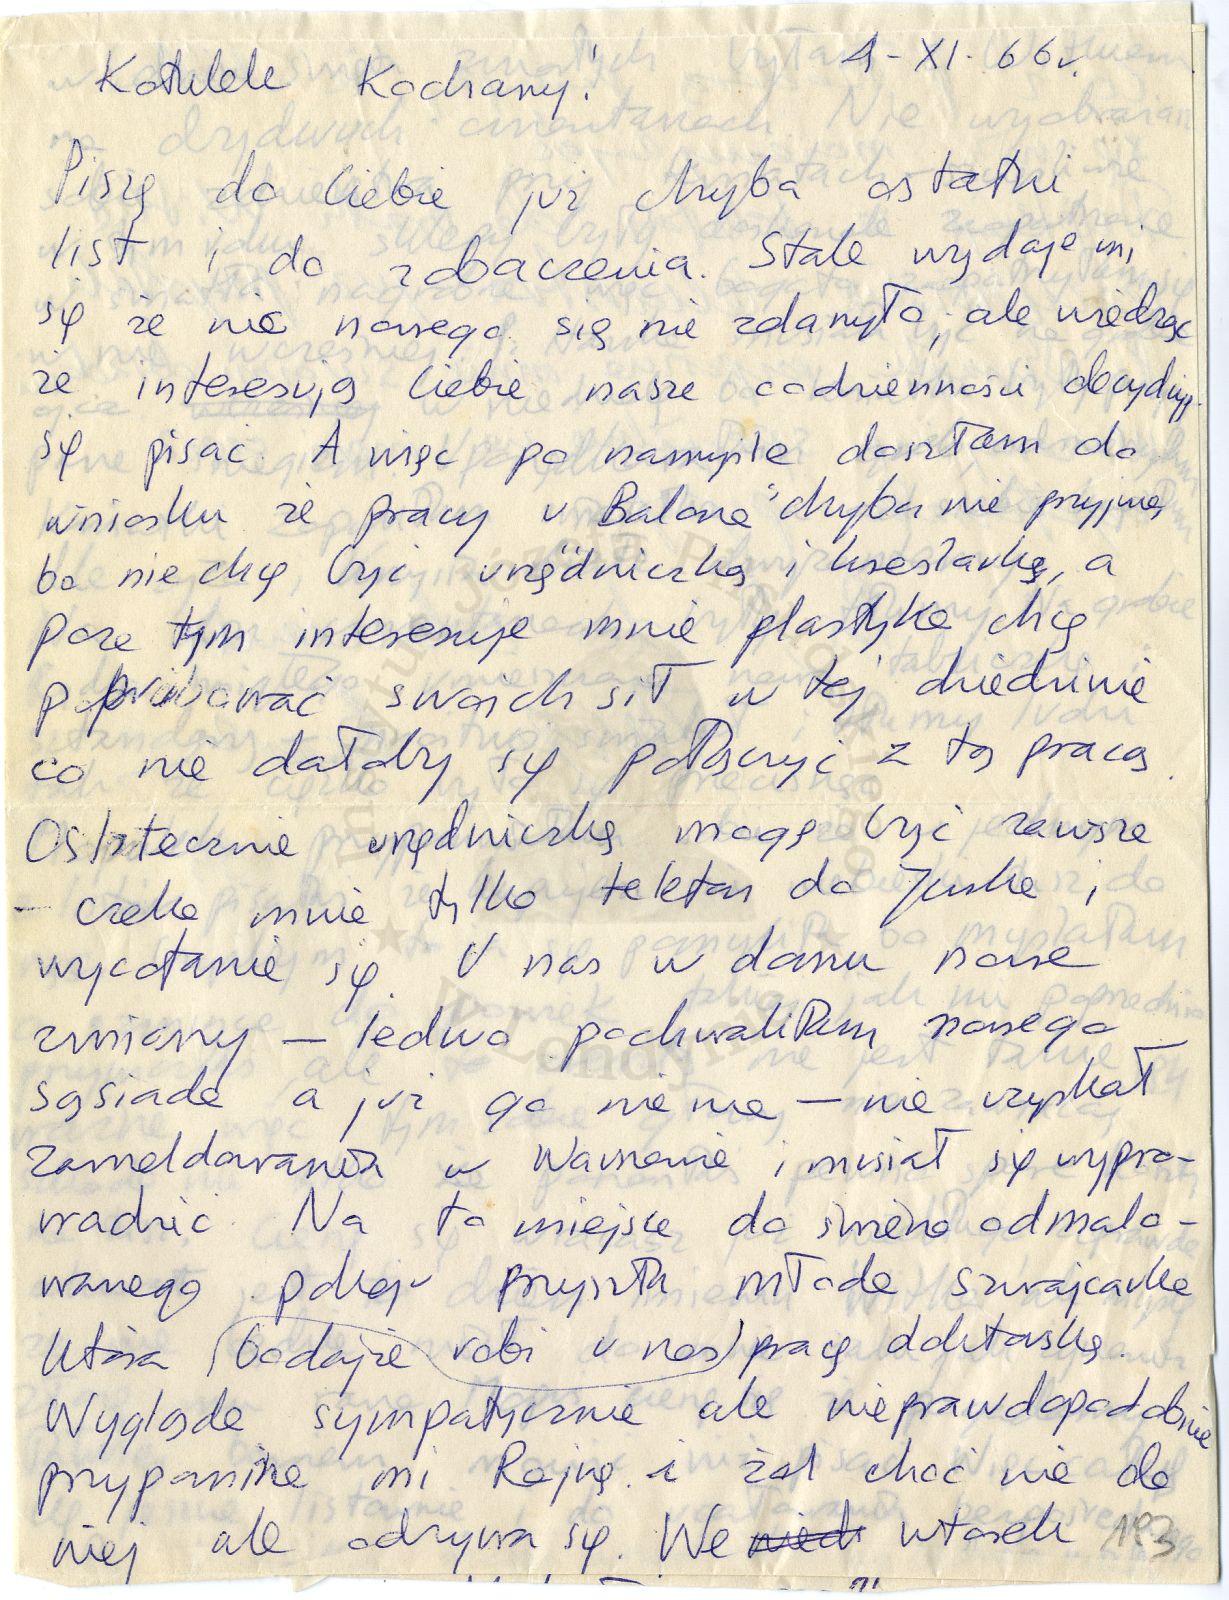 4-XI-66r.
Kotulek Kochany!
Piszę do Ciebie już chyba ostatni
list i do zobaczenia. Stale wydaje mi
się że nic nowego się nie zdarzyło, ale wiedząc
że interesują Ciebie nasze codzienności decyduję
się pisać. A więc po namyśle doszłam do
wniosku że pracy u Balona" chyba nie przyjmę,
bo nie chcę być urzędniczką i kreślarką, a
poza tym interesuje mnie plastyka chcę
popróbować swoich sił w tej dziedzinie
co nie dałoby się połączyć z tą pracą.
Ostatecznie urzędniczką mogę być zawsze
- czeka mnie tylko telefon do Jurka i
wycofanie się. U nas w domu nowe
zmiany – ledwo pochwaliłam nowego
sąsiada a już go nie ma – nie uzyskał
zameldowania w Warszawie i musiał się wypro-
wadzić. Na to miejsce do świeżo odmalo-
wanego pokoju przyszła młoda szwajcarka
która (bodajże robi u nas) pracę doktorską.
Wygląda sympatycznie ale nieprawdopodobnie
przypomina mi Rajnę i żal choć nie do
niej ale odzywa się. We wtorek
193
Instytut Józefa Piłsudskiego
w Londynie